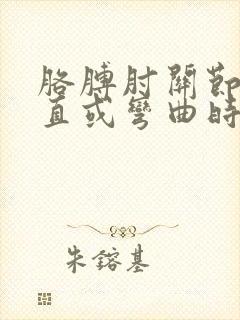 胳膊肘關節
直或彎曲時
朱鎔基